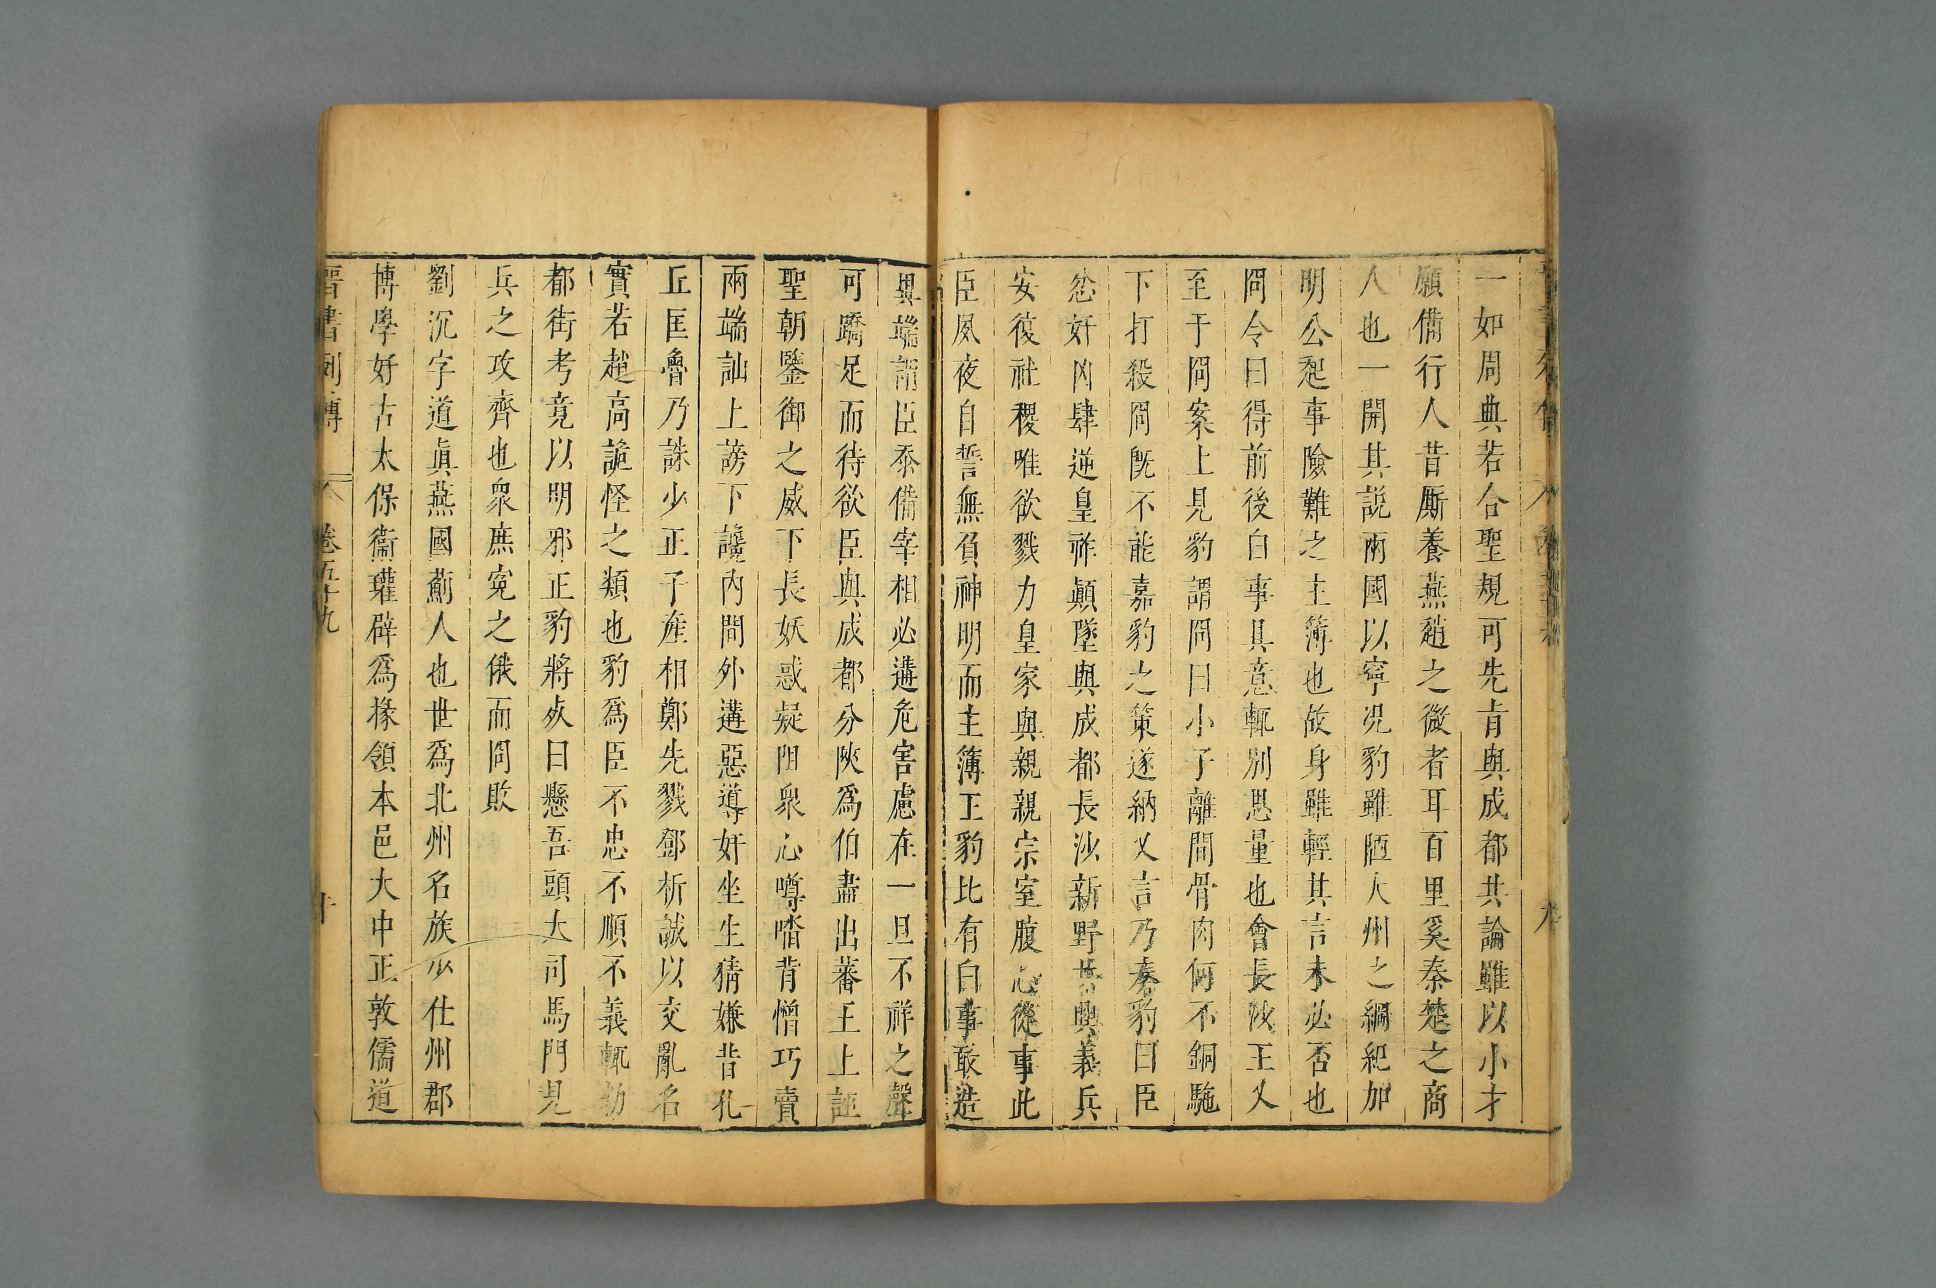 一如周典若合聖規可先旨與成都共論雖以小才
願備行人昔厮養燕趙之微者耳百里奚秦楚之商
人也一開其説兩國以寧况豹雖陋大州之綱紀加
明公起事險難之主簿也故身雖輕其言未必否也
冏令曰得前後白事具意輒别思量也會長沙王乂
至于冏案上見豹謂冏曰小子離間骨肉何不銅駞
下打殺冏既不能嘉豹之策遂納乂言乃奏豹曰臣
忿奸凶肆逆皇祚顛墜與成都長沙新野共興義兵
安復社稷唯欲戮力皇家與親親宗室腹心從事此
臣夙夜自誓無負神明而主簿王豹比有白事敢造
異端謂臣忝備宰相必遘危害慮在一旦不祥之聲
可蹻足而待欲臣與成都分陜爲伯盡出蕃王上誣
聖朝鑒御之威下長妖惑疑阻衆心噂㳫背憎巧賣
兩端訕上謗下讒内間外遘惡導奸坐生猜嫌昔孔
丘匡魯乃誅少正子産相鄭先戮鄧析誠以交亂名
實若趙高詭怪之類也豹爲臣不忠不順不義輒勑
都街考竟以明邪正豹將死曰懸吾頭大司馬門見
兵之攻齊也衆庶寃之俄而冏敗
劉沉字道眞燕國薊人也世爲北州名族少仕州郡
博學好古太保衞瓘辟爲掾領本邑大中正敦儒道
晋書列傳 卷五十九 十